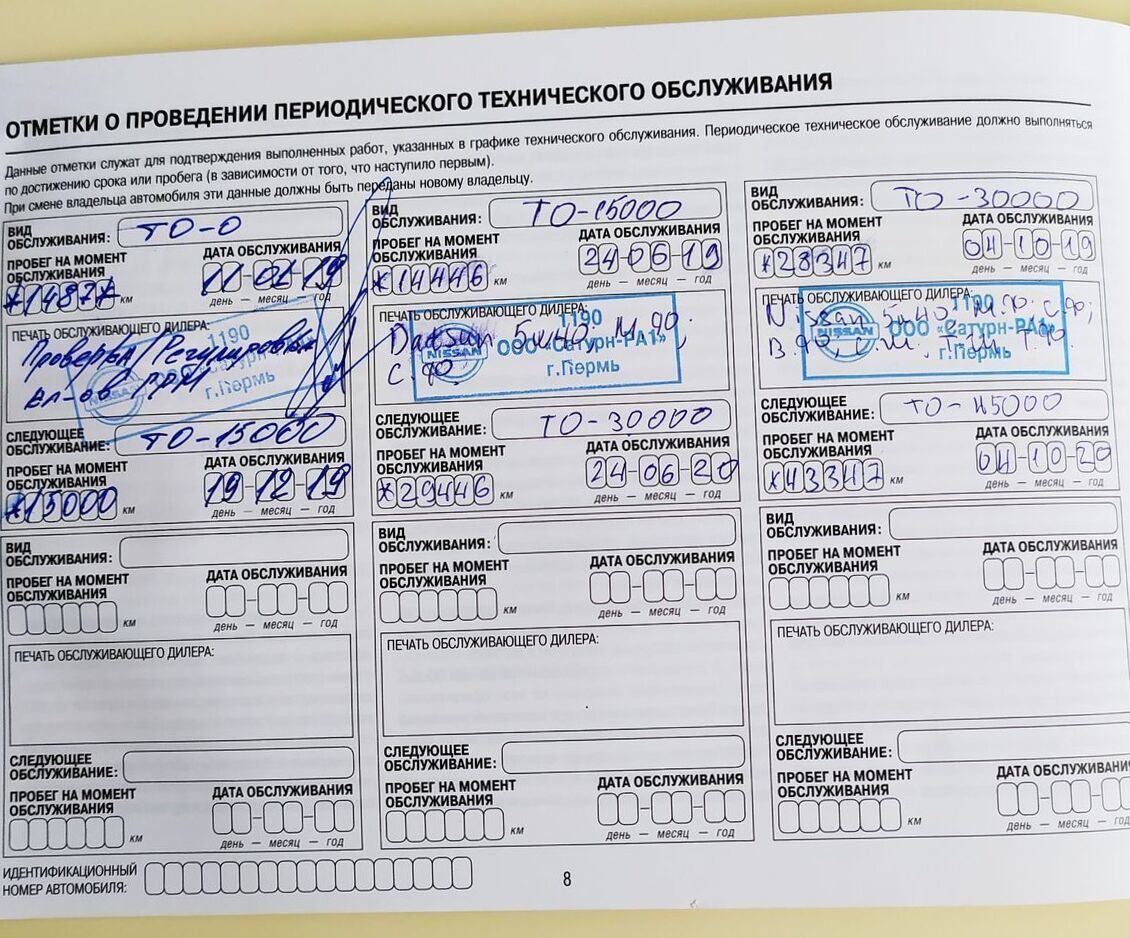 ОТМЕТКИ О ПРОВЕДЕНИИ ПЕРИОДИЧЕСКОГО ТЕХНИЧЕСКОГО ОБСЛУЖИВАНИЯ
Данные отметки служат для подтверждения выполненных работ, указанных в графике технического обслуживания. Периодическое техническое обслуживание должно выполняться
по достижению срока или пробега (в зависимости от того, что наступило первым).
При смене владельца автомобиля эти данные должны быть переданы новому владельцу.
ВИД
ОБСЛУЖИВАНИЯ: ТО-0
ПРОБЕГ НА МОМЕНТ
ОБСЛУЖИВАНИЯ
ДАТА ОБСЛУЖИВАНИЯ
км
11-01-19
день — месяц — год
ПЕЧАТЬ ОБСЛУЖИВАЮЩЕГО ДИЛЕРА:
1190
Проверка/Регулировка
NISSAN
г.Пермь
СЛЕДУЮЩЕЕ
ОБСЛУЖИВАНИЕ: ТО-15000
ПРОБЕГ НА МОМЕНТ
ОБСЛУЖИВАНИЯ
ДАТА ОБСЛУЖИВАНИЯ
*15000 км
19-12-19
день — месяц — год
ВИД
ОБСЛУЖИВАНИЯ: ТО-15000
ПРОБЕГ НА МОМЕНТ
ОБСЛУЖИВАНИЯ
ДАТА ОБСЛУЖИВАНИЯ
*14446 км
24-06-19
день — месяц — год
ПЕЧАТЬ ОБСЛУЖИВАЮЩЕГО ДИЛЕРА:
1190
Datsun 5w40, м.ф.;
NISSAN
ООО «Сатурн-РА1»
с.ф.
г.Пермь
СЛЕДУЮЩЕЕ
ОБСЛУЖИВАНИЕ: ТО-30000
ПРОБЕГ НА МОМЕНТ
ОБСЛУЖИВАНИЯ
ДАТА ОБСЛУЖИВАНИЯ
*29446 км
24-06-20
день — месяц — год
ВИД
ОБСЛУЖИВАНИЯ: ТО-30000
ПРОБЕГ НА МОМЕНТ
ОБСЛУЖИВАНИЯ
ДАТА ОБСЛУЖИВАНИЯ
*28347 км
04-10-19
день — месяц — год
ПЕЧАТЬ ОБСЛУЖИВАЮЩЕГО ДИЛЕРА:
1190
Nissan 5w40, м.ф. с.ф;
NISSAN
ООО «Сатурн-РА1»
В.ф,
г.Пермь
СЛЕДУЮЩЕЕ
ОБСЛУЖИВАНИЕ: ТО-45000
ПРОБЕГ НА МОМЕНТ
ОБСЛУЖИВАНИЯ
ДАТА ОБСЛУЖИВАНИЯ
*43347 км
04-10-20
день — месяц — год
ВИД
ОБСЛУЖИВАНИЯ:
ПРОБЕГ НА МОМЕНТ
ОБСЛУЖИВАНИЯ
ДАТА ОБСЛУЖИВАНИЯ
км
день — месяц — год
ПЕЧАТЬ ОБСЛУЖИВАЮЩЕГО ДИЛЕРА:
СЛЕДУЮЩЕЕ
ОБСЛУЖИВАНИЕ:
ПРОБЕГ НА МОМЕНТ
ОБСЛУЖИВАНИЯ
ДАТА ОБСЛУЖИВАНИЯ
км
день — месяц — год
ВИД
ОБСЛУЖИВАНИЯ:
ПРОБЕГ НА МОМЕНТ
ОБСЛУЖИВАНИЯ
ДАТА ОБСЛУЖИВАНИЯ
км
день — месяц — год
ПЕЧАТЬ ОБСЛУЖИВАЮЩЕГО ДИЛЕРА:
СЛЕДУЮЩЕЕ
ОБСЛУЖИВАНИЕ:
ПРОБЕГ НА МОМЕНТ
ОБСЛУЖИВАНИЯ
ДАТА ОБСЛУЖИВАНИЯ
км
день — месяц — год
ВИД
ОБСЛУЖИВАНИЯ:
ПРОБЕГ НА МОМЕНТ
ОБСЛУЖИВАНИЯ
ДАТА ОБСЛУЖИВАНИЯ
км
день — месяц — год
ПЕЧАТЬ ОБСЛУЖИВАЮЩЕГО ДИЛЕРА:
СЛЕДУЮЩЕЕ
ОБСЛУЖИВАНИЕ:
ПРОБЕГ НА МОМЕНТ
ОБСЛУЖИВАНИЯ
ДАТА ОБСЛУЖИВАНИЯ
км
день — месяц — год
ИДЕНТИФИКАЦИОННЫЙ
НОМЕР АВТОМОБИЛЯ:
8